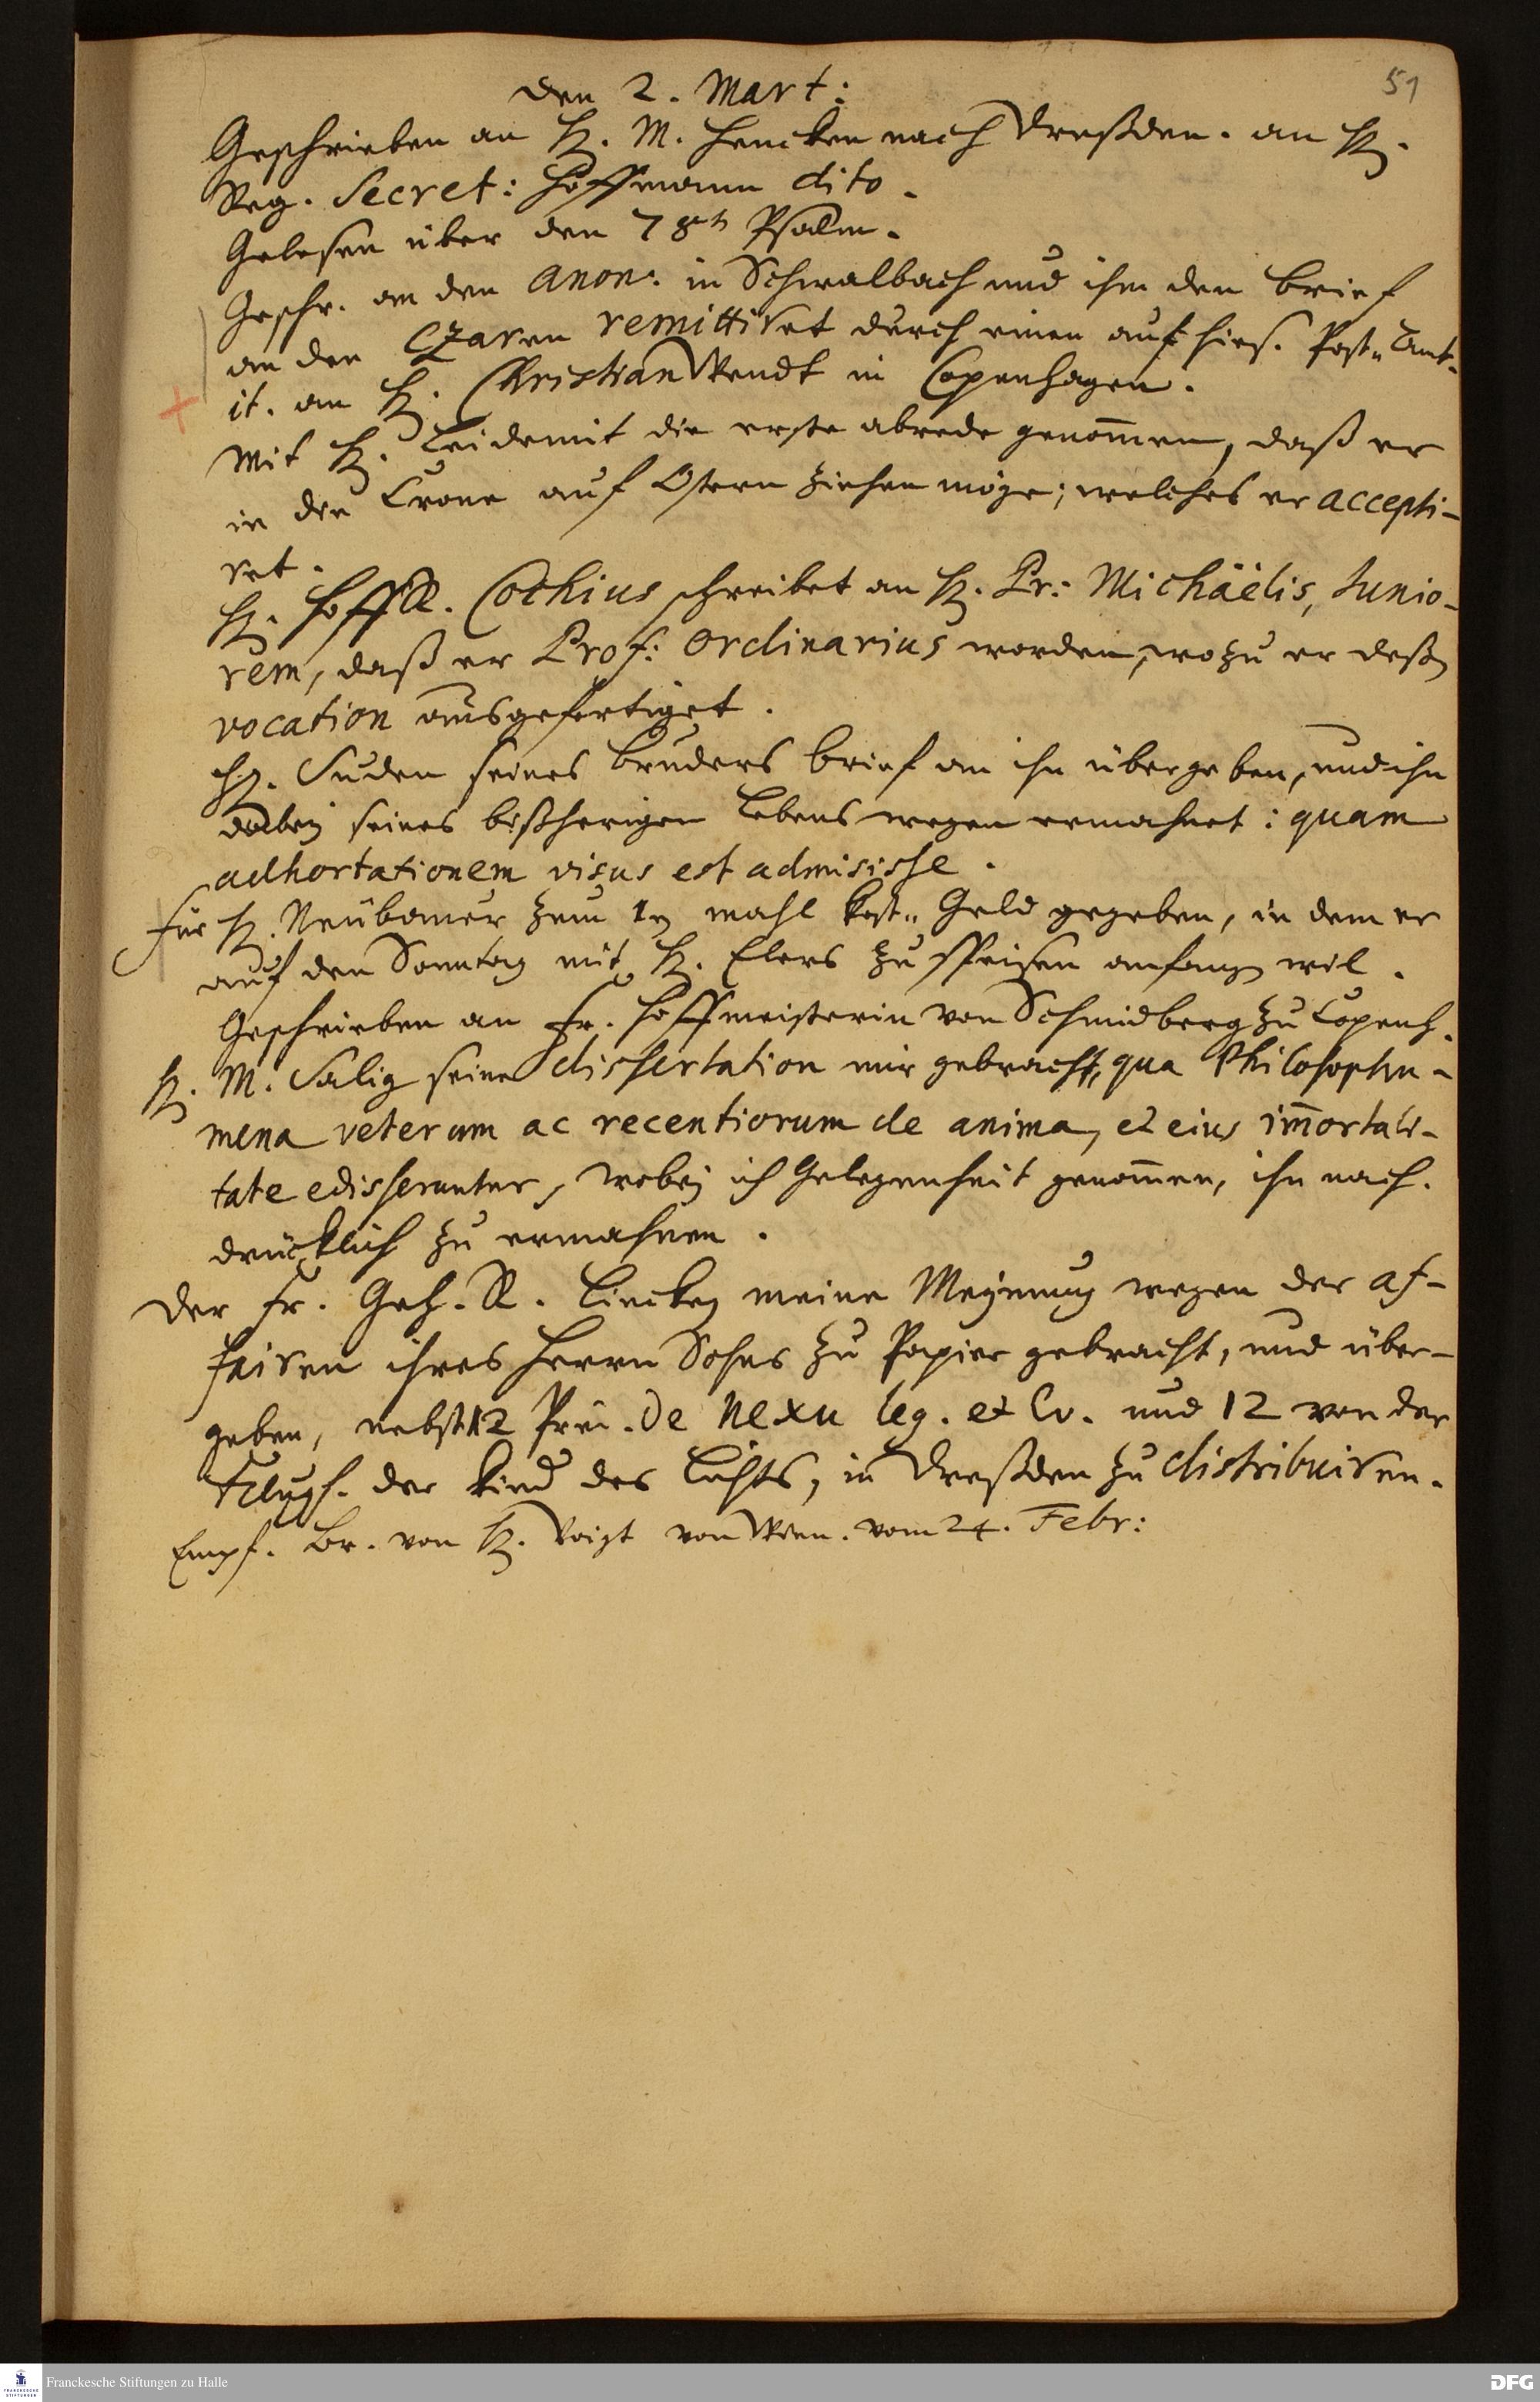 51
den 2. Mart:
Geschrieben an H. M. Hencken nach Dreßden. an H.
Reg. Secret: Hoffmann dito.
Gelesen über den 78ten Psalm.
Geschr. an den Anon: in Schwalbach und ihm den brief
an den Czaren remittiret durch einen auf hies. Post-Amt.
it. an H. Christian Wendt in Copenhagen.
Mit H. Leidemit die erste abrede genommen, daß er
in der Crone auf Ostern ziehen möge; welches er accepti-
ret.
H. Hoffr. Cochius schreibet an H. Pr: Michaëlis, Junio-
rem, daß er Prof: Ordinarius worden, wozu er deßen
vocation ausgefertiget.
H. Suden seines bruders brief an ihn übergeben, und ihn
dabey seines bißherigen Lebens wegen ermahnet: quam
adhortationem visus est admisisse.
für H. Neubauer zum 1n mahl kost- Geld gegeben, in dem er
auf den Sonntag mit H. Elers zu speisen anfangen wil.
Geschrieben an Fr. Hoffmeisterin von Schmidberg zu Copenh.
H. M. Salig seine dissertation mir gebracht, qua Philosophu-
mena veterum ac recentiorum de anima, et eius immortali-
tate edisseruntur, wobey ich Gelegenheit genommen, ihn nach-
drücklich zu ermahnen.
Der Fr. Geh. R. Lincken meine Meynung wegen der af-
fairen ihres Herrn Sohns zu Papier gebracht, und über-
geben, nebst 12 Pred. De Nexu leg. et Ev. und 12 von der
Klugh. der Kind des Lichts, in Dreßden zu distribuiren.
Empf. Br. von H. Voigt von Wien. vom 24. Febr:
Franckesche Stiftungen zu Halle
DFG